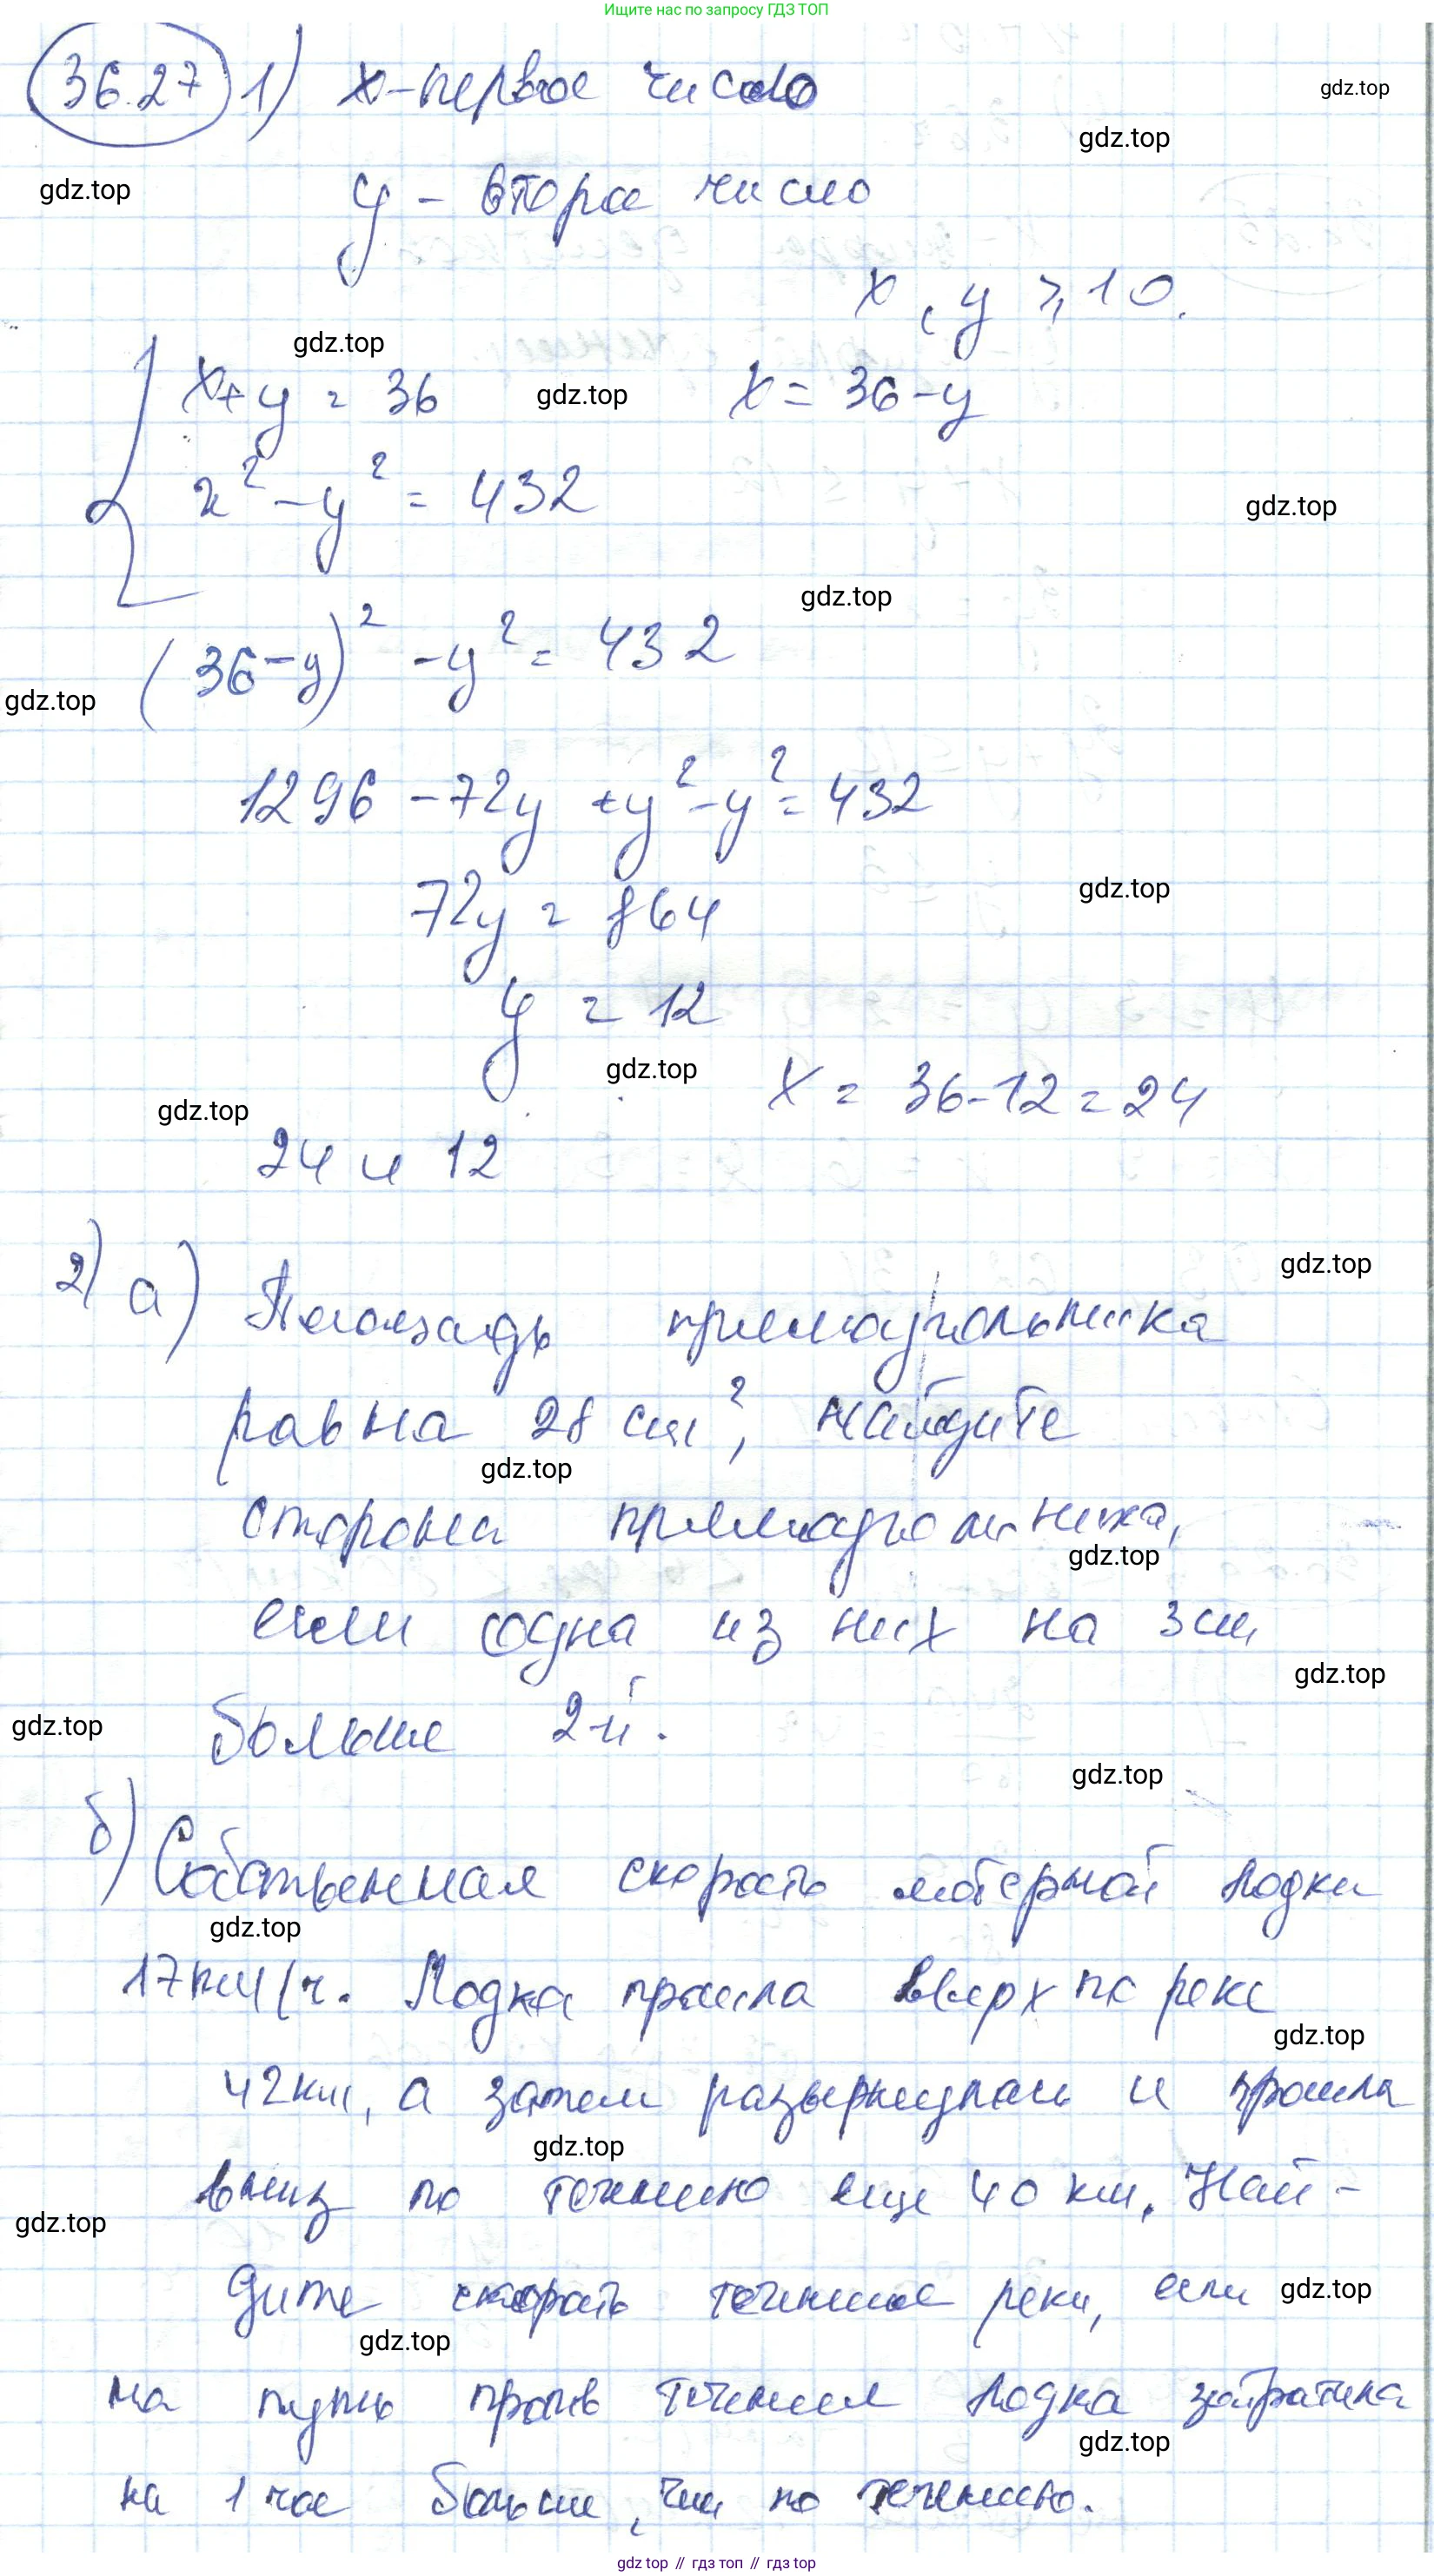 Ищите нас по запросу ГДЗ ТОП
36.27 1) x - первое число
gdz.top
gdz.top
gdz.top
y - второе число
x, y ⩾ 10.
gdz.top
x + y = 36 gdz.top x = 36 - y
x² - y² = 432
gdz.top
gdz.top
(36 - y)² - y² = 432
gdz.top
1296 - 72y + y² - y² = 432
72y = 864
gdz.top
y = 12
gdz.top
x = 36 - 12 = 24
gdz.top
24 и 12
2) а) Площадь прямоугольника
gdz.top
равна 28 см², найдите
gdz.top
стороны прямоугольника,
gdz.top
если одна из них на 3 см
gdz.top
больше 2-й.
gdz.top
gdz.top
б) Собственная скорость моторной лодки
gdz.top
17 км/ч. Лодка прошла вверх по реке
gdz.top
42 км, а затем развернулась и прошла
gdz.top
вниз по течению еще 40 км. Най-
gdz.top
дите скорость течения реки, если
gdz.top
gdz.top
на путь против течения лодка затратила
gdz.top
на 1 час больше, чем по течению.
gdz top // гдз топ // гдз top